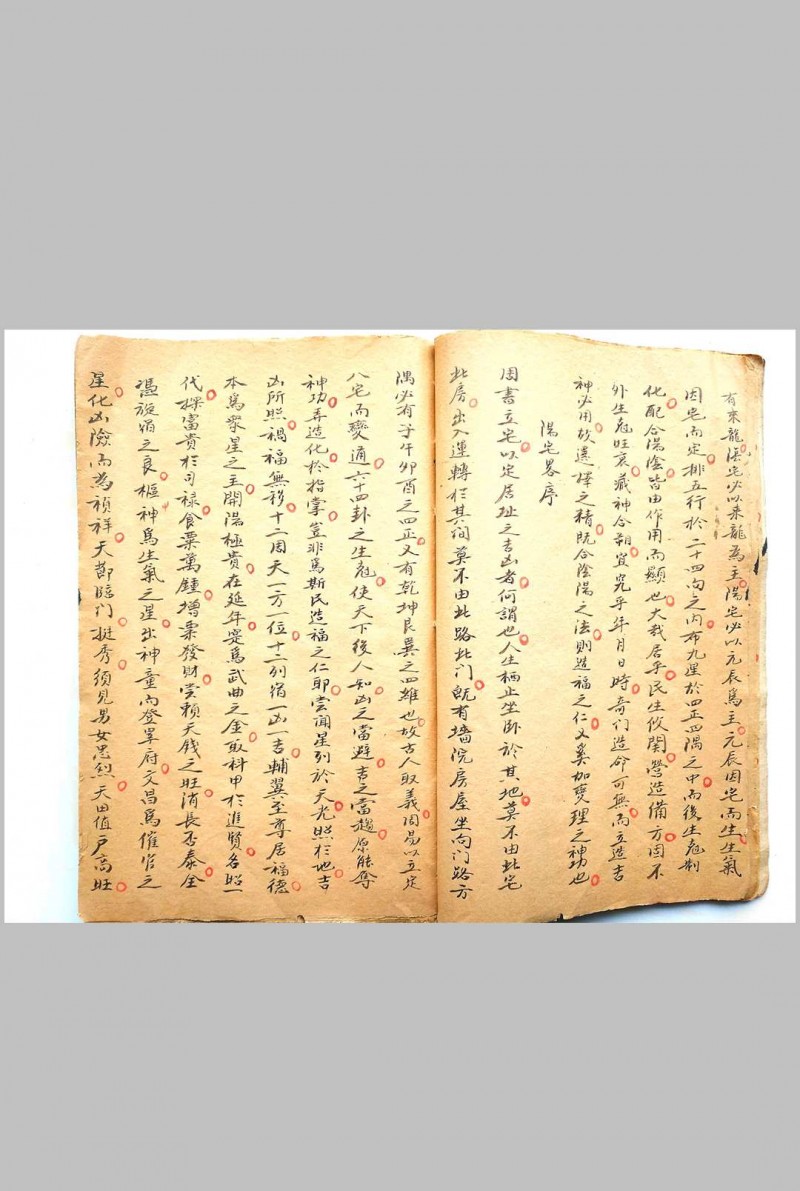 有來龍陰宅必以來龍為主陽宅必以元辰為主元辰因宅而生生氣
因宅而定排五行於二十四向之內布九星於四正四隅之中而後生尅制
化配合陽陰皆由作用而顯也大哉居乎民生攸関營造備方因不
外生尅旺衰藏神合朝宜究乎年月日時奇们造命可無而立造吉
神必用故選擇之精既合陰陽之法則造福之仁又奚加燮理之神功也
陽宅畧序
周書立宅以定居址之吉凶者何謂也人生栖止坐卧於其地莫不由此宅
此房出入運轉於其间莫不由此路此门旣有墻院房屋坐向门路方
隅必有子午卯酉之四正又有乾坤艮巽之四維也故古人取義周易以立定
八宅而變通六十四卦之生尅使天下後人知凶之當避吉之當趨原能奪
神功弄造化於指掌豈非為斯民造福之仁耶嘗闻星列於天光照於地吉
凶所照禍福無移十二周天一方一位十二列宿一凶一吉輔翼至尊居福德
本為衆星之主開陽極貴在延年寔為武曲之金取科甲於進賢名照一
代槑富貴於司禄食粟萬鍾增粟發財尝賴天錢之旺消長否泰全
憑旋宿之良樞神為生氣之星出神童而登單府文昌為催官之
星化凶險而為禎祥天部臨门挺秀須見男女忠烈天田值戶高旺